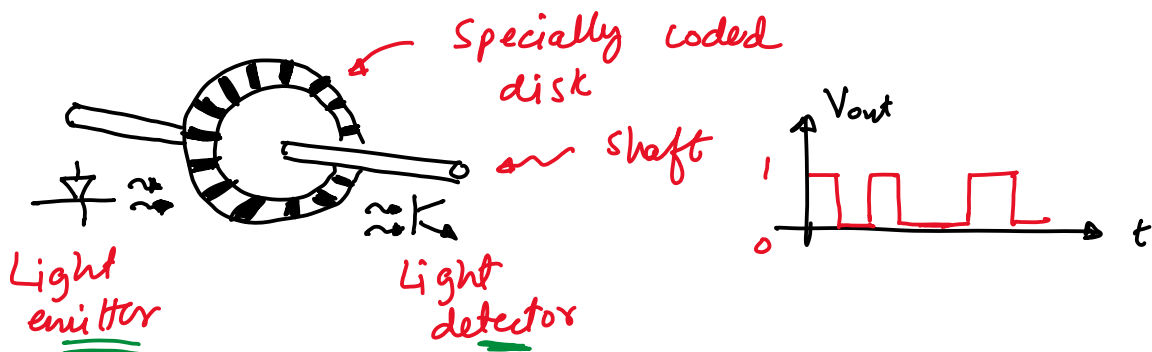 Specially coded
disk
shaft
Light
emitter
Light
detector
Vout
1
0
t